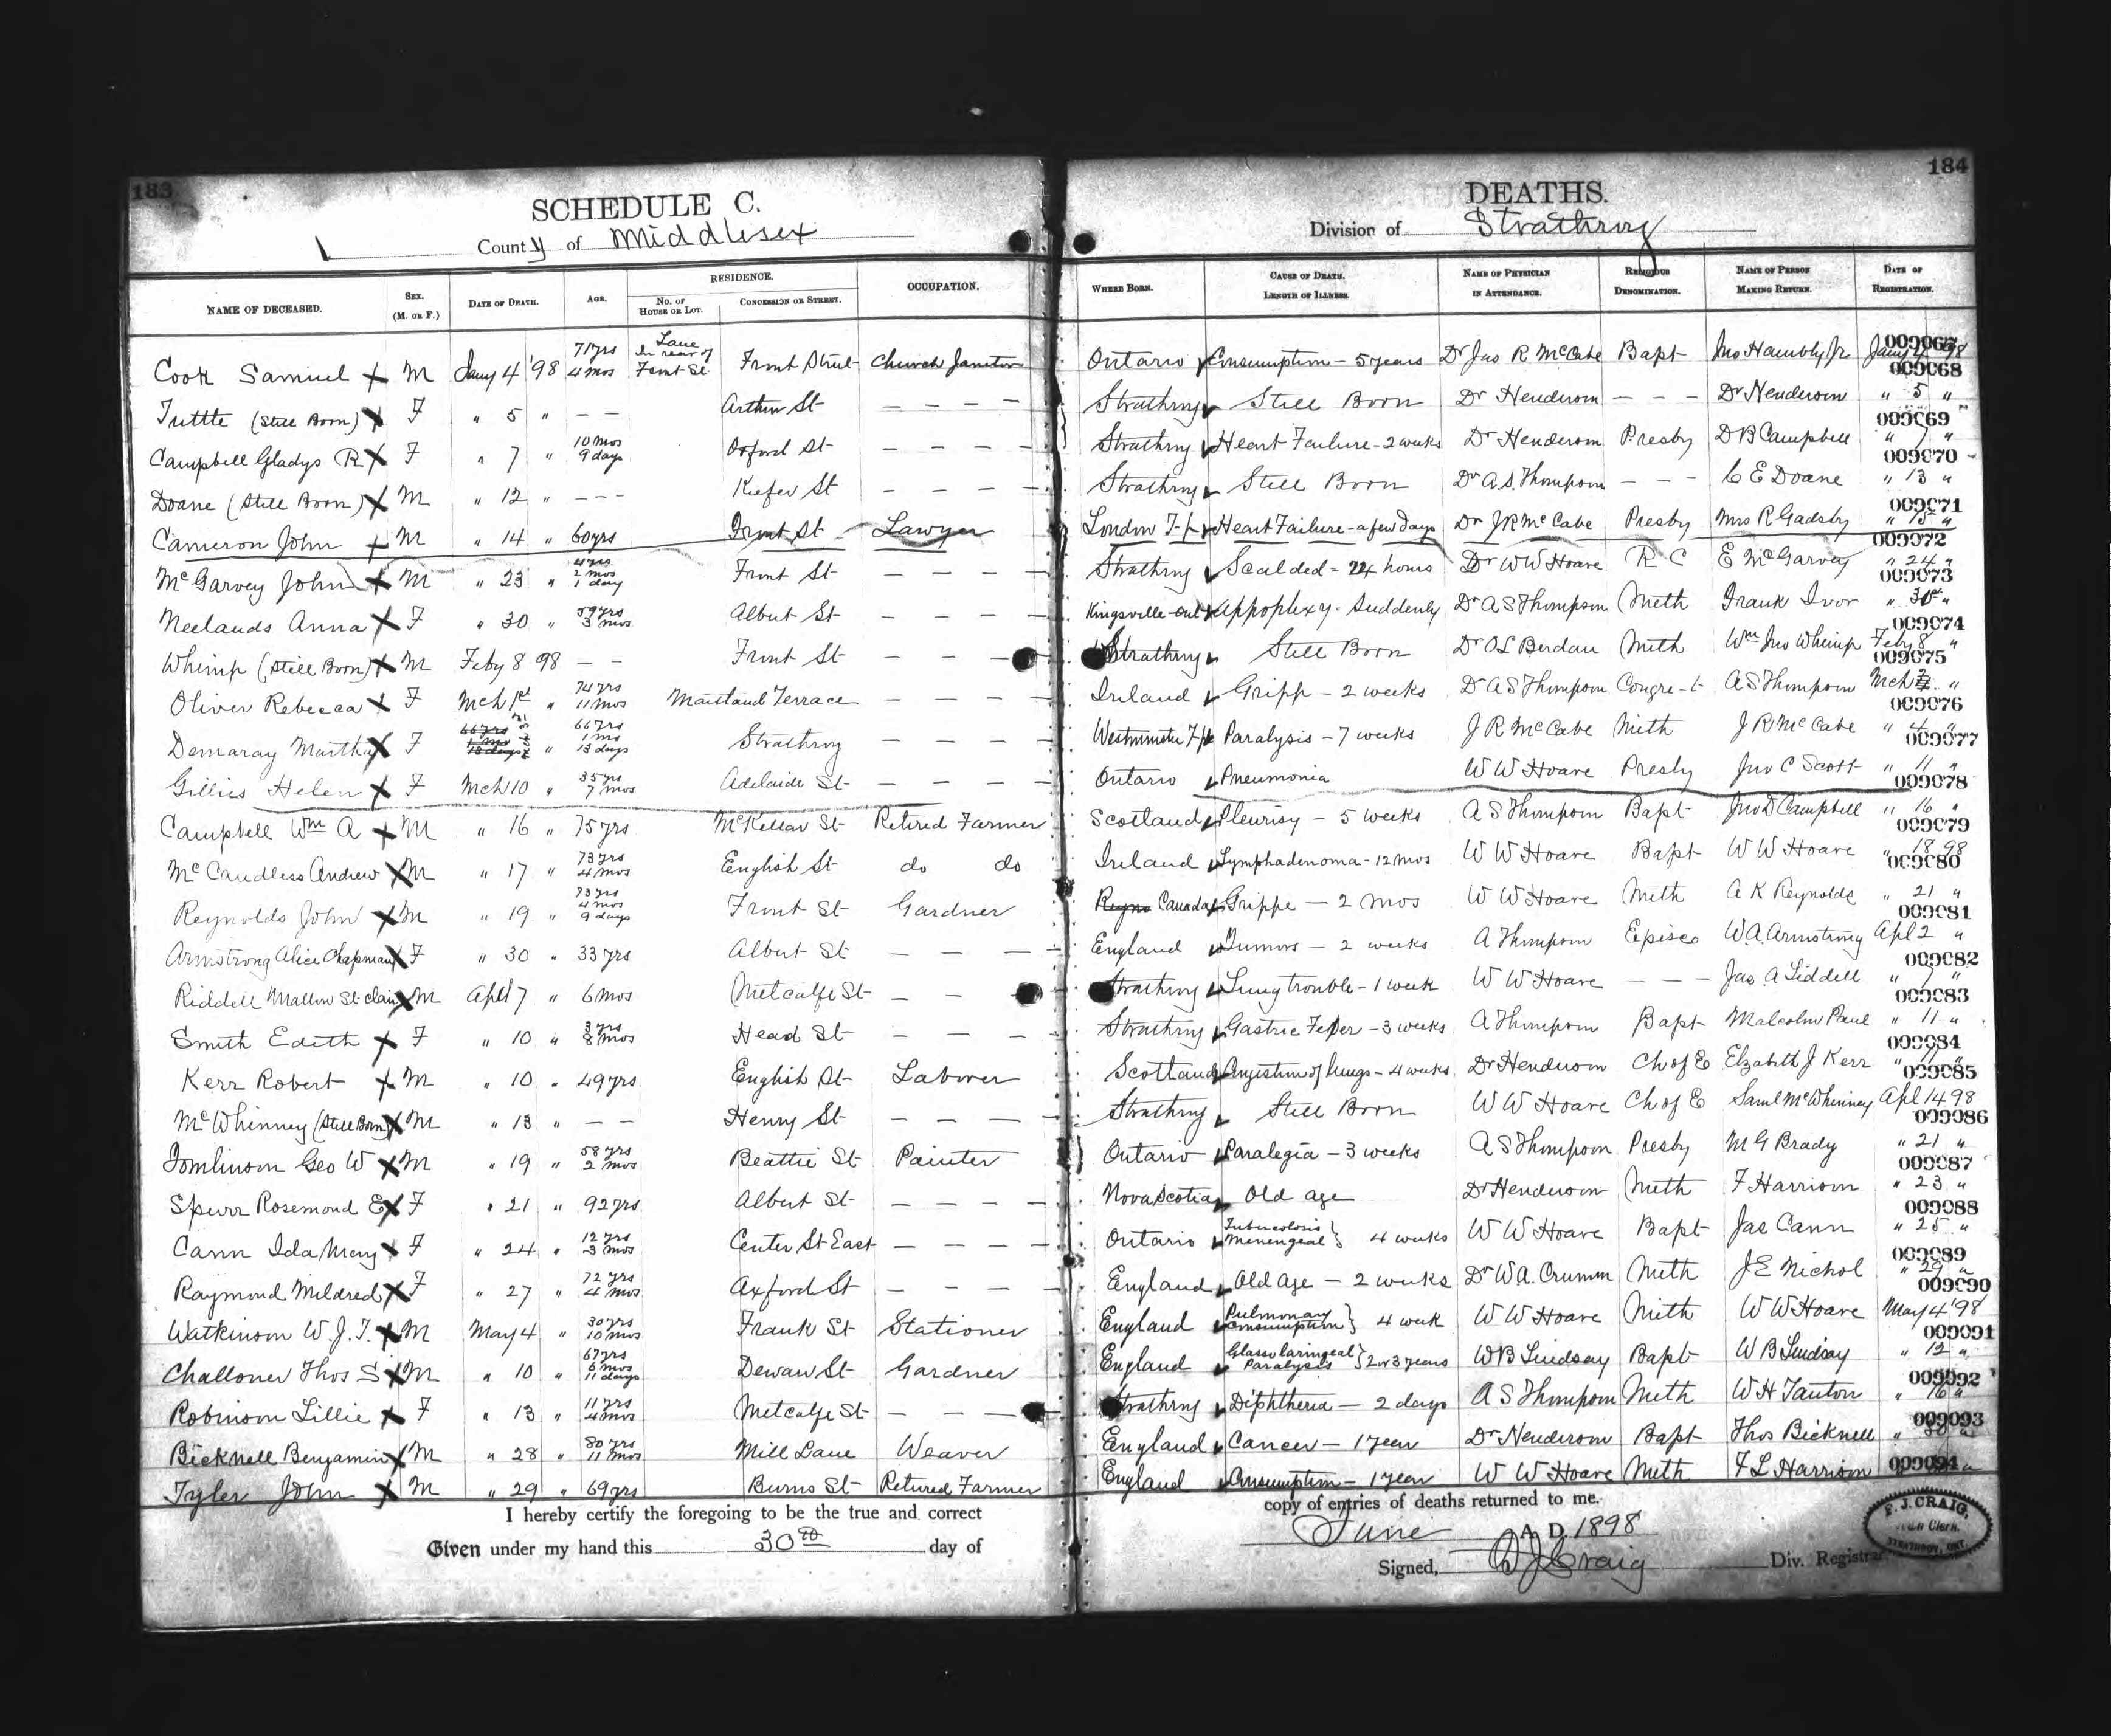 183
SCHEDULE C.
County of Middlesex
NAME OF DECEASED. SEX. (M. OR F.) DATE OF DEATH. AGE. RESIDENCE. NO. OF HOUSE OR LOT. CONCESSION OR STREET. OCCUPATION.
184
DEATHS.
Division of Strathroy
WHERE BORN. CAUSE OF DEATH. LENGTH OF ILLNESS. NAME OF PHYSICIAN IN ATTENDANCE. RELIGIOUS DENOMINATION. NAME OF PERSON MAKING RETURN. DATE OF REGISTRATION.
Cook Samuel M Jany 4 '98 71 yrs 4 mos Lane In rear of Front St Front Street Church Janitor Ontario Consumption - 5 years Dr Jas R McCabe Bapt Jno Hambly Jr Jany 4 '98 009067
Tuttle (Still Born) F " 5 " - - Arthur St - - - - Strathroy Still Born Dr Henderson - - - Dr Henderson " 5 " 009068
Campbell Gladys R F " 7 " 10 mos 9 days Oxford St - - - - Strathroy Heart Failure - 2 weeks Dr Henderson Presby D B Campbell " 7 " 009069
Doane (Still Born) M " 12 " - - - Kiefer St - - - - Strathroy Still Born Dr A.S. Thompson - - - C E Doane " 13 " 009070
Cameron John M " 14 " 60 yrs Front St Lawyer London T-p Heart Failure - a few days Dr J R McCabe Presby Mrs R Gadsby " 15 " 009071
McGarvey John M " 23 " 4 yrs 2 mos 1 day Front St - - - - Strathroy Scalded - 24 hours Dr W W Hoare R C E McGarvey " 24 " 009072
Neelands Anna F " 30 " 59 yrs 3 mos Albert St - - - - Kingsville - Ont Appoplexy - Suddenly Dr A S Thompson Meth Frank Ivor " 31st " 009073
Whimp (Still Born) M Feby 8 98 - - Front St - - - Strathroy Still Born Dr O L Berdan Meth Wm Jno Whimp Feby 8 " 009074
Oliver Rebecca F Mch 1st " 74 yrs 11 mos Maitland Terrace - - - - Ireland Gripp - 2 weeks Dr A S Thompson Congre-l A S Thompson Mch " 009075
Demaray Martha F 66 yrs 1 mo 13 days " 66 yrs 1 mo 13 days Strathroy - - - - Westminster T-p Paralysis - 7 weeks J R McCabe Meth J R McCabe " 4 " 009076
Gillies Helen F Mch 10 " 35 yrs 7 mos Adelaide St - - - - Ontario Pneumonia W W Hoare Presby Jno C Scott " 11 " 009077
Campbell Wm A M " 16 " 75 yrs McKellar St Retired Farmer Scotland Pleurisy - 5 weeks A S Thompson Bapt Jno D Campbell " 16 " 009078
McCandless Andrew M " 17 " 73 yrs 4 mos English St do do Ireland Lymphadenoma - 12 mos W W Hoare Bapt W W Hoare " 18 98 009079
Reynolds John M " 19 " 73 yrs 4 mos 9 days Front St Gardner Canada Grippe - 2 mos W W Hoare Meth A K Reynolds " 21 " 009080
Armstrong Alice Chapman F " 30 " 33 yrs Albert St - - - - England Tumors - 2 weeks A Thompson Episco W.A. Armstrong Apl 2 " 009081
Riddell Mallow St clair M Apll 7 " 6 mos Metcalfe St - - Strathroy Lung trouble - 1 week W W Hoare - - - Jas. A Liddell " 7 " 009082
Smith Edith F " 10 " 3 yrs 8 mos Head St - - - Strathroy Gastric Fever - 3 weeks A Thompson Bapt Malcolm Paul " 11 " 009083
Kerr Robert M " 10 " 49 yrs English St Laborer Scotland Congestion of lungs - 4 weeks Dr Henderson Ch of E Elzabeth J Kerr " 11 " 009084
McWhinney (Still Born) M " 13 " - - Henry St - - - Strathroy Still Born W W Hoare Ch of E Saml McWhinney Apl 14 98 009085
Tomlinson Geo W M " 19 " 58 yrs 2 mos Beattie St Painter Ontario Paralegia - 3 weeks A S Thompson Presby M G Brady " 21 " 009086
Spurr Rosemond E F " 21 " 92 yrs Albert St - - - - Nova Scotia Old age Dr Henderson Meth F Harrison " 23 " 009087
Cann Ida Mary F " 24 " 12 yrs 3 mos Center St East - - - - Ontario Tuberculosis Menengeal 4 weeks W W Hoare Bapt Jas Cann " 25 " 009088
Raymond Mildred F " 27 " 72 yrs 4 mos Axford St - - - - England Old Age - 2 weeks Dr W A. Crumm Meth J E Nichol " 29 " 009089
Watkinson W. J. T. M May 4 " 30 yrs 10 mos Frank St Stationer England Pulmonary Consumption 4 week W W Hoare Meth W W Hoare May 4 '98 009090
Challoner Thos S M " 10 " 67 yrs 6 mos 11 days Dewan St Gardner England Glasso laringeal Paralysis 2 or 3 years W B Lindsay Bapt W B Lindsay " 12 " 009091
Robinson Lillie F " 13 " 11 yrs 4 mos Metcalfe St - - - Strathroy Diphtheria - 2 days A S Thompson Meth W H Tanton " 16 " 009092
Bicknell Benjamin M " 28 " 80 yrs 11 mos Mill Lane Weaver England Cancer - 1 year Dr Henderson Bapt Thos Bicknell " 30 " 009093
Tyler John M " 29 " 69 yrs Burns St Retired Farmer England Consumption - 1 year W W Hoare Meth F L Harrison 009094
I hereby certify the foregoing to be the true and correct copy of entries of deaths returned to me.
Given under my hand this 30th day of June A. D. 1898
Signed, F J Craig Div. Registrar
F. J. CRAIG,
Town Clerk.
STRATHROY, ONT.